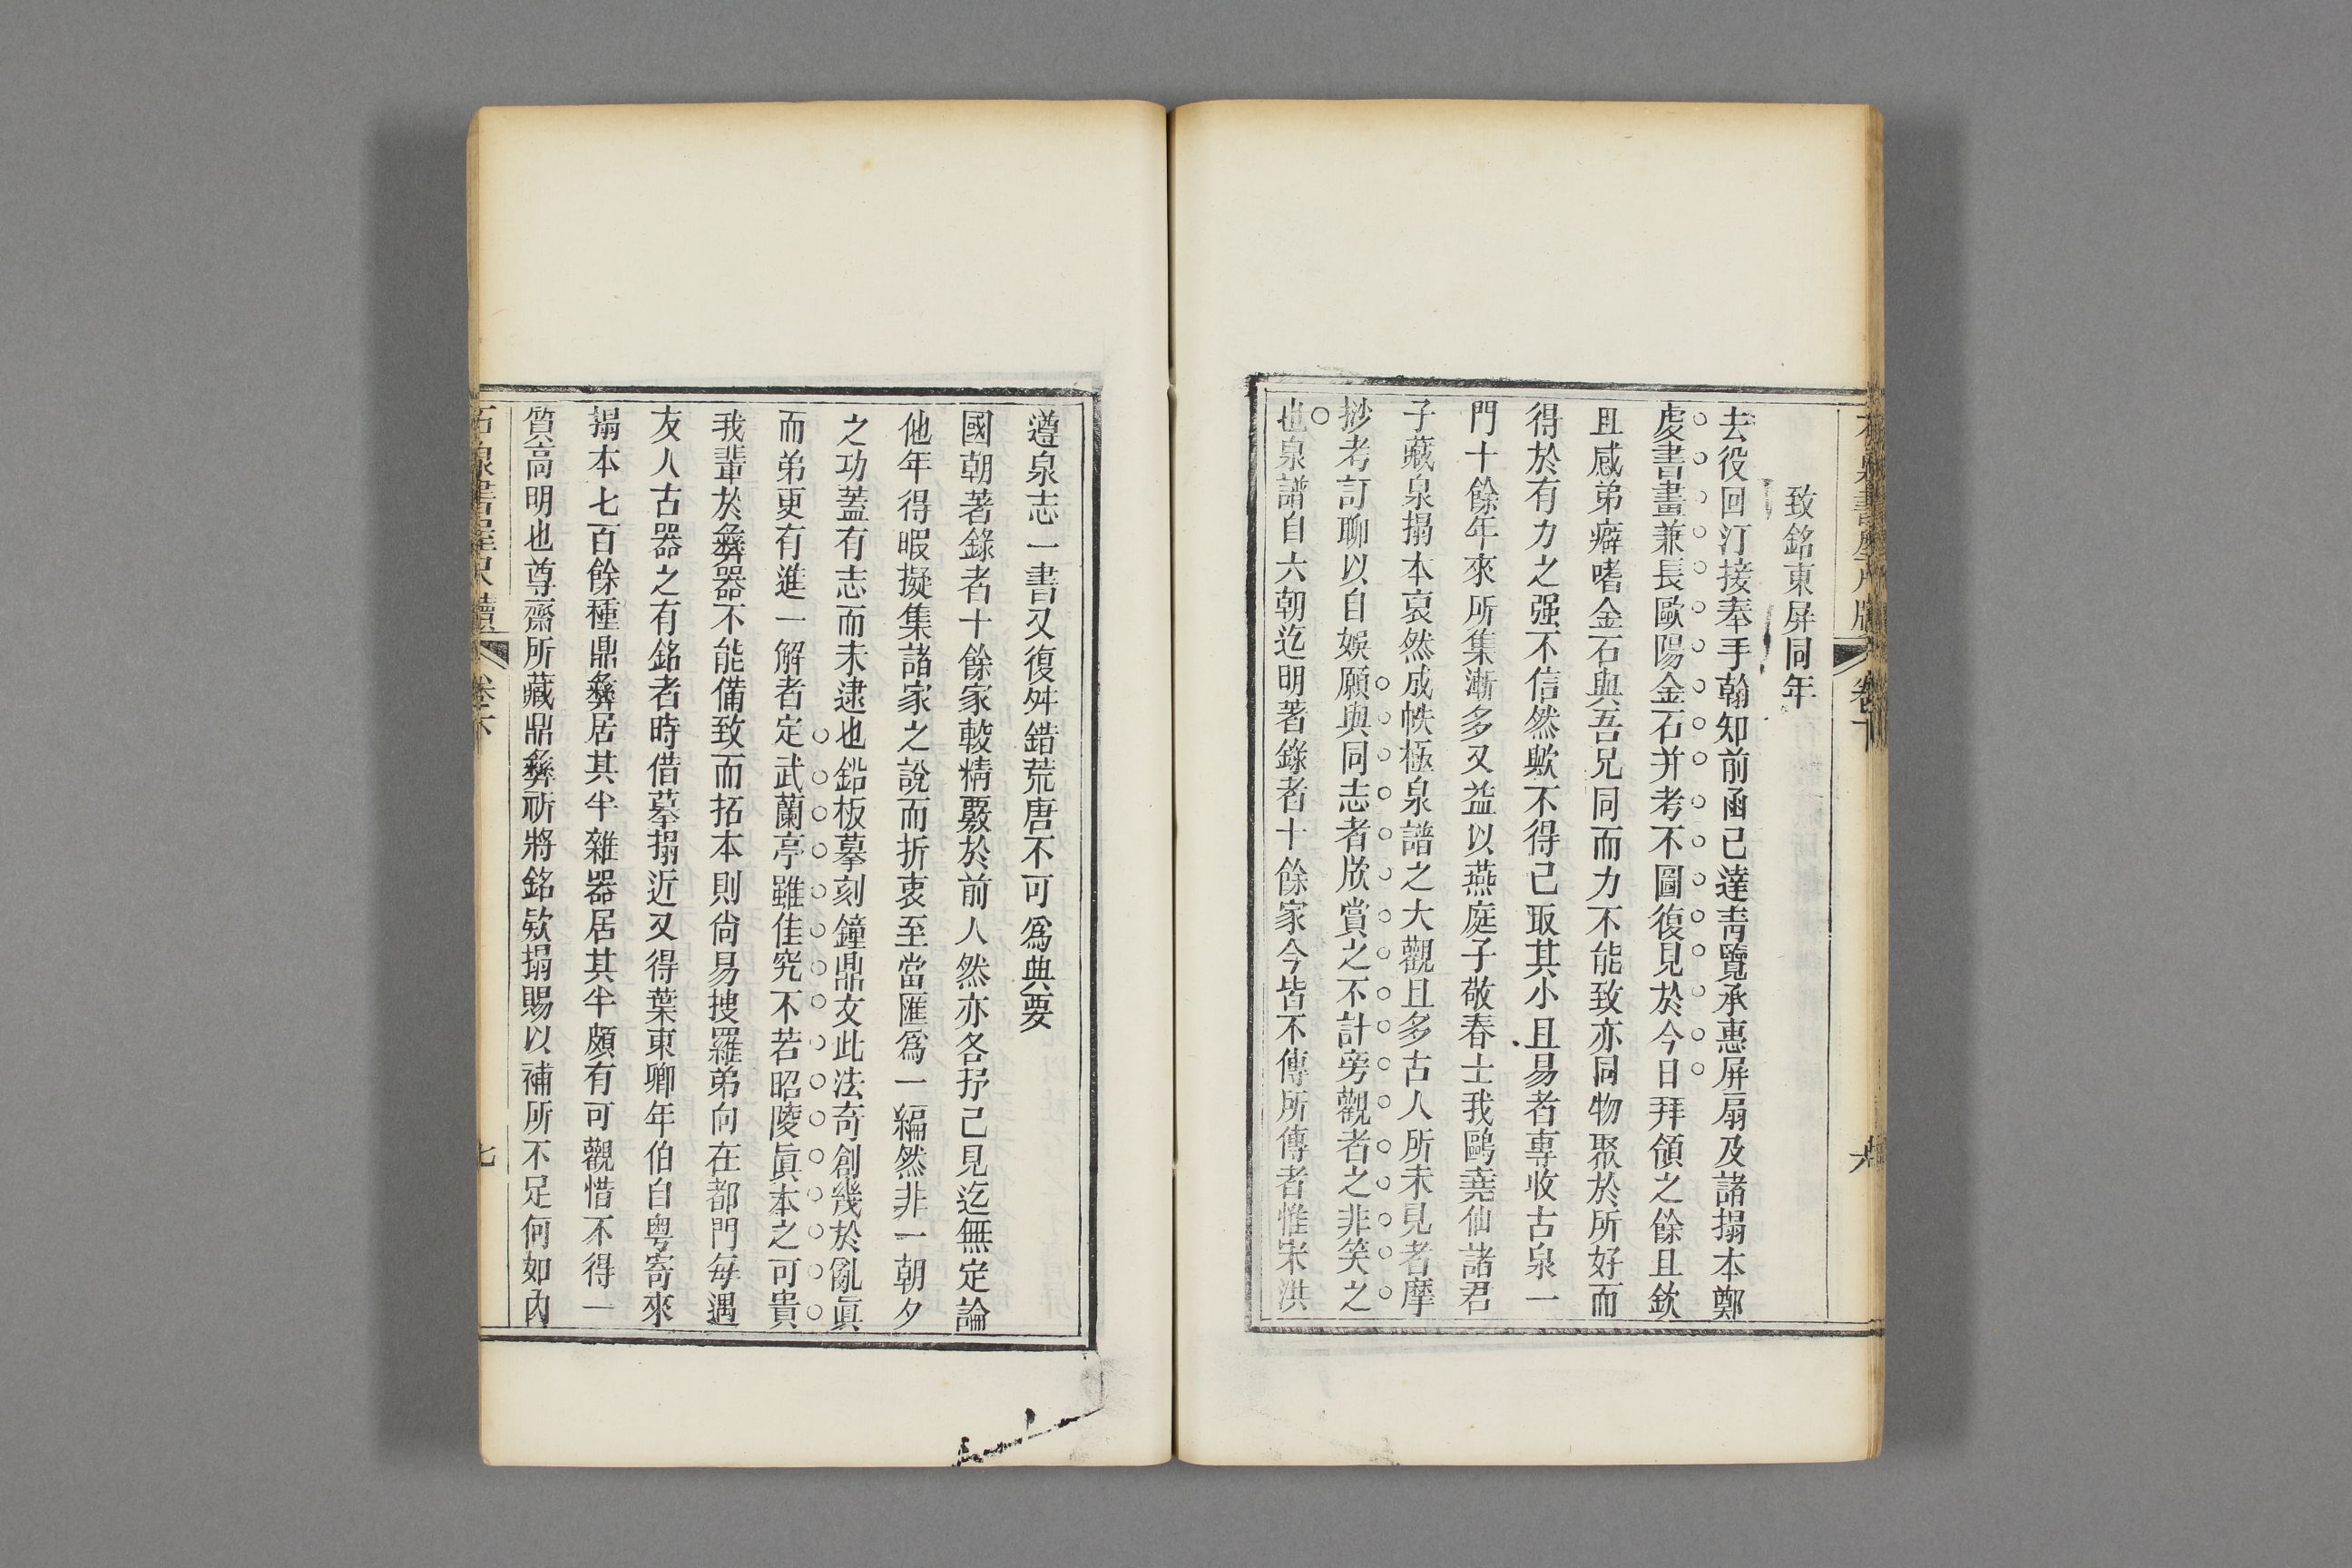 致銘東屏同年
去役回汀接奉手翰知前函己達靑覽承惠屏扇及諸搨本鄭
虔書畫兼長歐陽金石并考不圖復見於今日拜領之餘且欽
且感弟癖嗜金石與吾兄同而力不能致亦同物聚於所好而
得於有力之强不信然歟不得己取其小且易者專收古泉一
門十餘年來所集漸多又益以燕庭子敬春士我鷗堯仙諸君
子藏泉搨本裒然成帙極泉譜之大觀且多古人所未見者摩
挱考訂聊以自娛願與同志者欣賞之不計旁觀者之非笑之
也泉譜自六朝迄明著錄者十餘家今皆不傳所傳者惟宋洪
遵泉志一書又復舛錯荒唐不可爲典要
國朝著錄者十餘家較精覈於前人然亦各抒己見迄無定論
他年得暇擬集諸家之說而折衷至當匯爲一編然非一朝夕
之功蓋有志而未逮也鉛板摹刻鐘鼎文此法奇創幾於亂眞
而弟更有進一解者定武蘭亭雖佳究不若昭陵眞本之可貴
我輩於彝器不能備致而拓本則尙易搜羅弟向在都門每遇
友人古器之有銘者時借摹搨近又得葉東卿年伯自粵寄來
搨本七百餘種鼎彝居其半雜器居其半頗有可觀惜不得一
質高明也尊齋所藏鼎彝祈將銘欵搨賜以補所不足何如內
石泉書屋尺牘 卷下 七